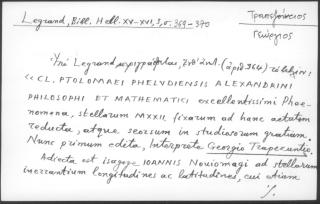 Legrand, Bibl. Hell. XV-XVI, 3, σ. 369-370
Τραπεζούντιος
Γεώργιος
Ὑπὸ Legrand περιγράφεται, ὑπ' ἀριθ. (ἀριθ. 364) τὸ βιβλίον:
« CL. PTOLOMAEI PHELUDIENSIS ALEXANDRINI
PHILOSOPHI ET MATHEMATICI excellentissimi Phae-
nomena, stellarum MXXII fixarum ad hanc aetatem
reducta, atque seorsum in studiosorum gratiam.
Nunc primum edita, Interprete Georgio Trapezuntio.
Adiecta est isagoge IOANNIS Noviomagi ad stellarum
inerrantium longitudines ac latitudines, cui etiam
·/.